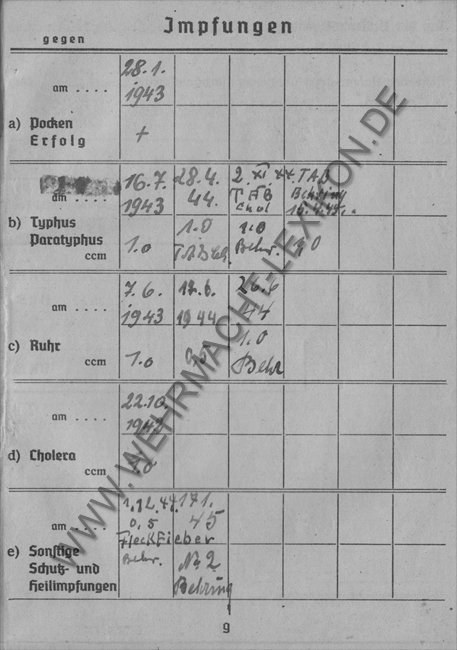 Impfungen
gegen
am .... 28.1. 1943
a) Pocken
Erfolg +
am .... 16.7. 1943 28.4. 44. 2. XI 44. TAB Chol TAB Behring
b) Typhus
Paratyphus
ccm 1.0 1.0 1.0 Behr.
am .... 7.6. 1943 1944 26.6 44
c) Ruhr
ccm 1.0 1.0 Behr
am .... 22.10.
d) Cholera
ccm 1.0
am .... 1.12.44 17.1. 45
0,5
Fleckfieber
e) Sonstige
Schutz- und
Heilimpfungen
Behr. Nr. 2
Behring
9
WWW.WEHRMACHT-LEXIKON.DE